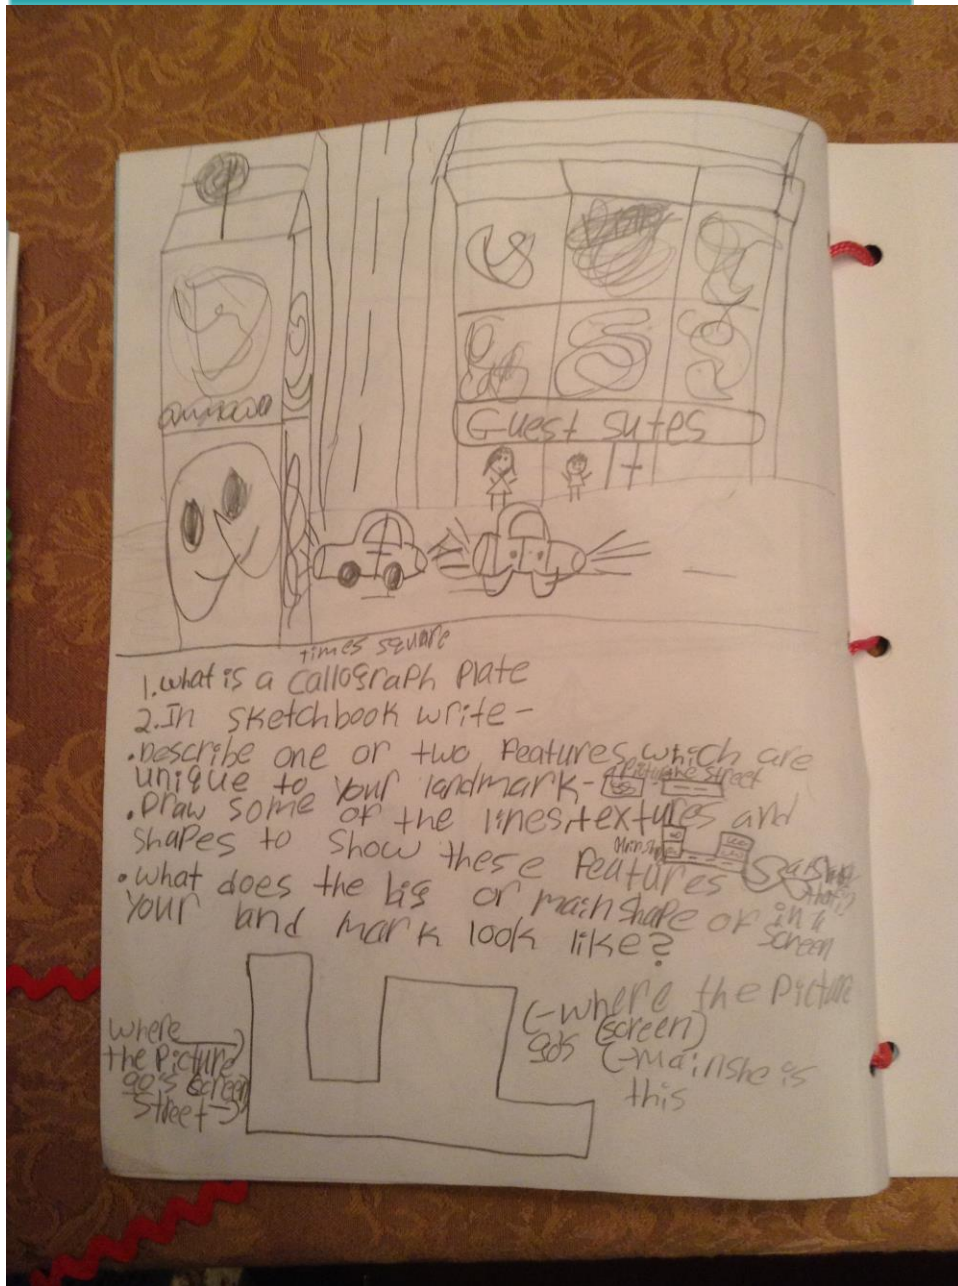 Guest sutes
times square
1. what is a callograph plate
2. In sketchbook write-
• Describe one or two features which are
unique to your landmark- picture street
• Draw some of the lines, textures and
shapes to show these features
• what does the big or main shape of
your land mark look like?
in a
screen
where
the picture
go's screen
street->
(-where the picture
go's (screen)
(-mainshe is
this